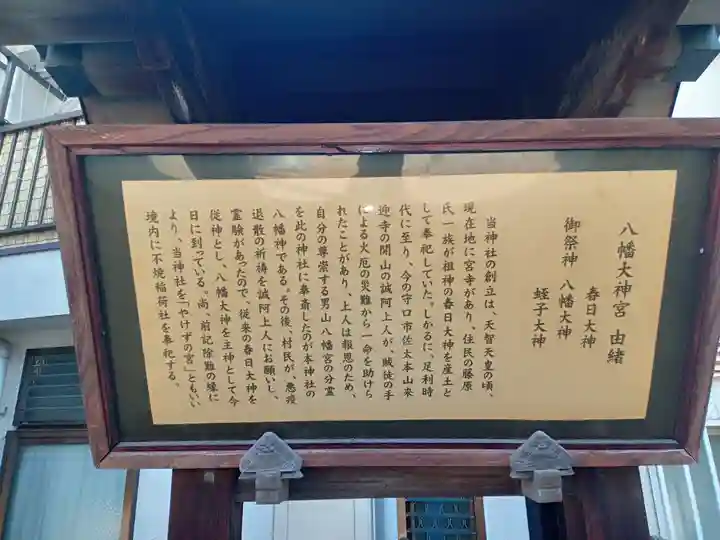 八幡大神宮 由緒
春日大神
御祭神 八幡大神
蛭子大神
当神社の創立は、天智天皇の頃、
現在地に宮寺があり、住民の藤原
氏一族が祖神の春日大神を産土と
して奉祀していた。しかるに、足利時
代に至り、今の守口市佐太本山来
迎寺の開山の誠阿上人が、賊徒の手
による火厄の災難から一命を助けら
れたことがあり、上人は報恩のため、
自分の尊崇する男山八幡宮の分霊
を此の神社に奉斎したのが本神社の
八幡神である。その後、村民が、悪疫
退散の祈祷を誠阿上人にお願いし、
霊験があったので、従来の春日大神を
従神とし、八幡大神を主神として今
日に到っている。尚、前記除難の縁に
より、当神社を「やけずの宮」ともいい、
境内に不焼稲荷社を奉祀する。